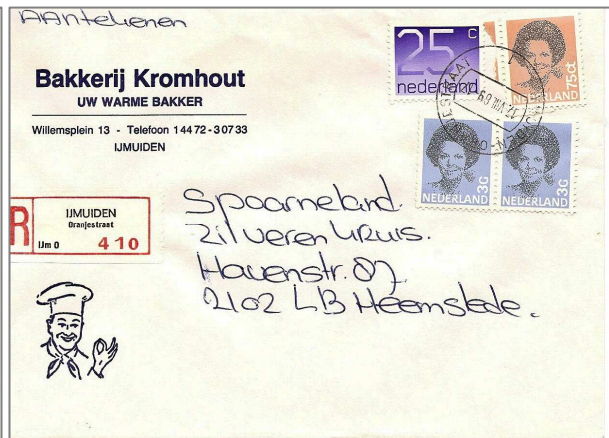 AANtekenen
Bakkerij Kromhout
UW WARME BAKKER
Willemsplein 13 - Telefoon 14472-30733
IJMUIDEN
25 c
nederland
75ct
NEDERLAND
3G
NEDERLAND
3G
NEDERLAND
R
IJMUIDEN
Oranjestraat
IJm 0 410
Spaarneland.
Zilveren Kruis.
Havenstr. 87
2102 LB Heemstede.